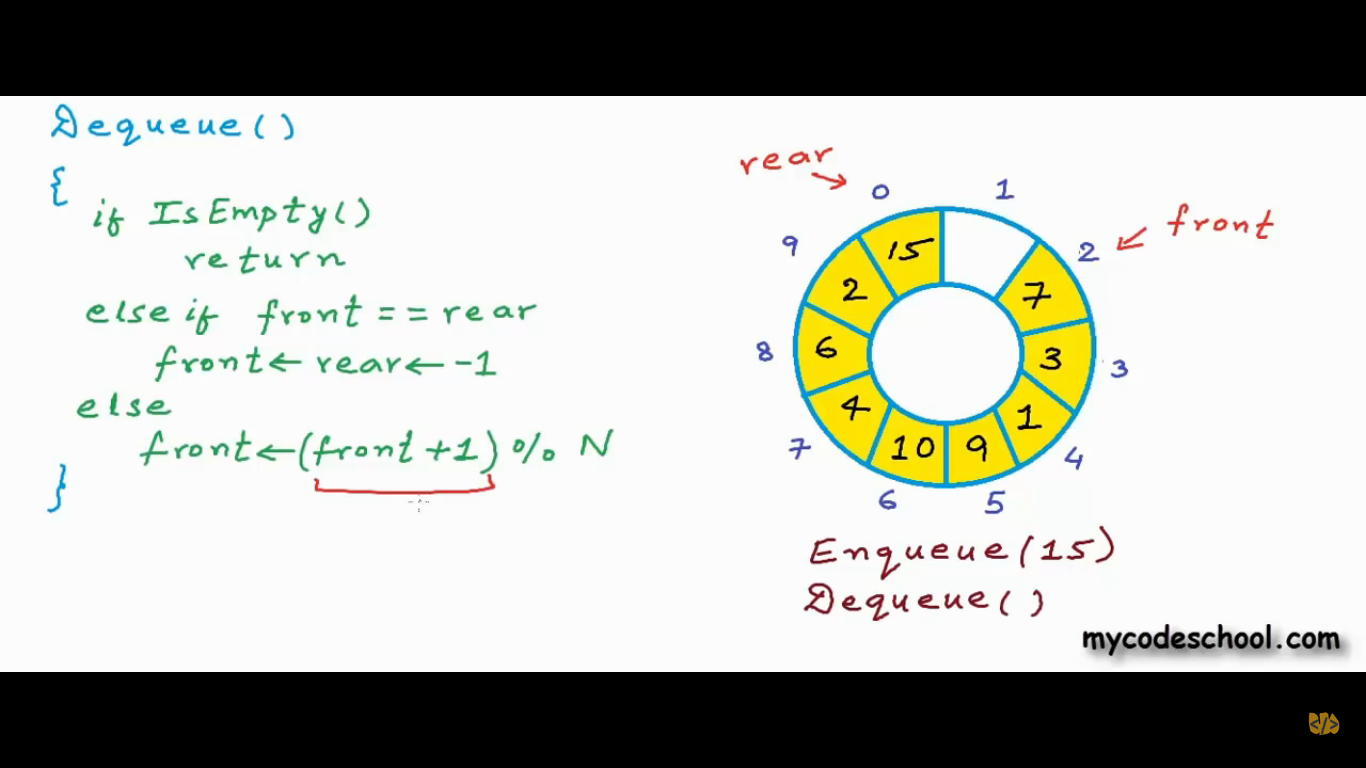 Dequeue()
{
if IsEmpty()
return
else if front == rear
front ← rear ← -1
else
front ← (front +1) % N
}
rear →
0
1
2
← front
9
15
7
2
8
6
3
3
4
1
7
10
9
4
6
5
Enqueue(15)
Dequeue()
mycodeschool.com